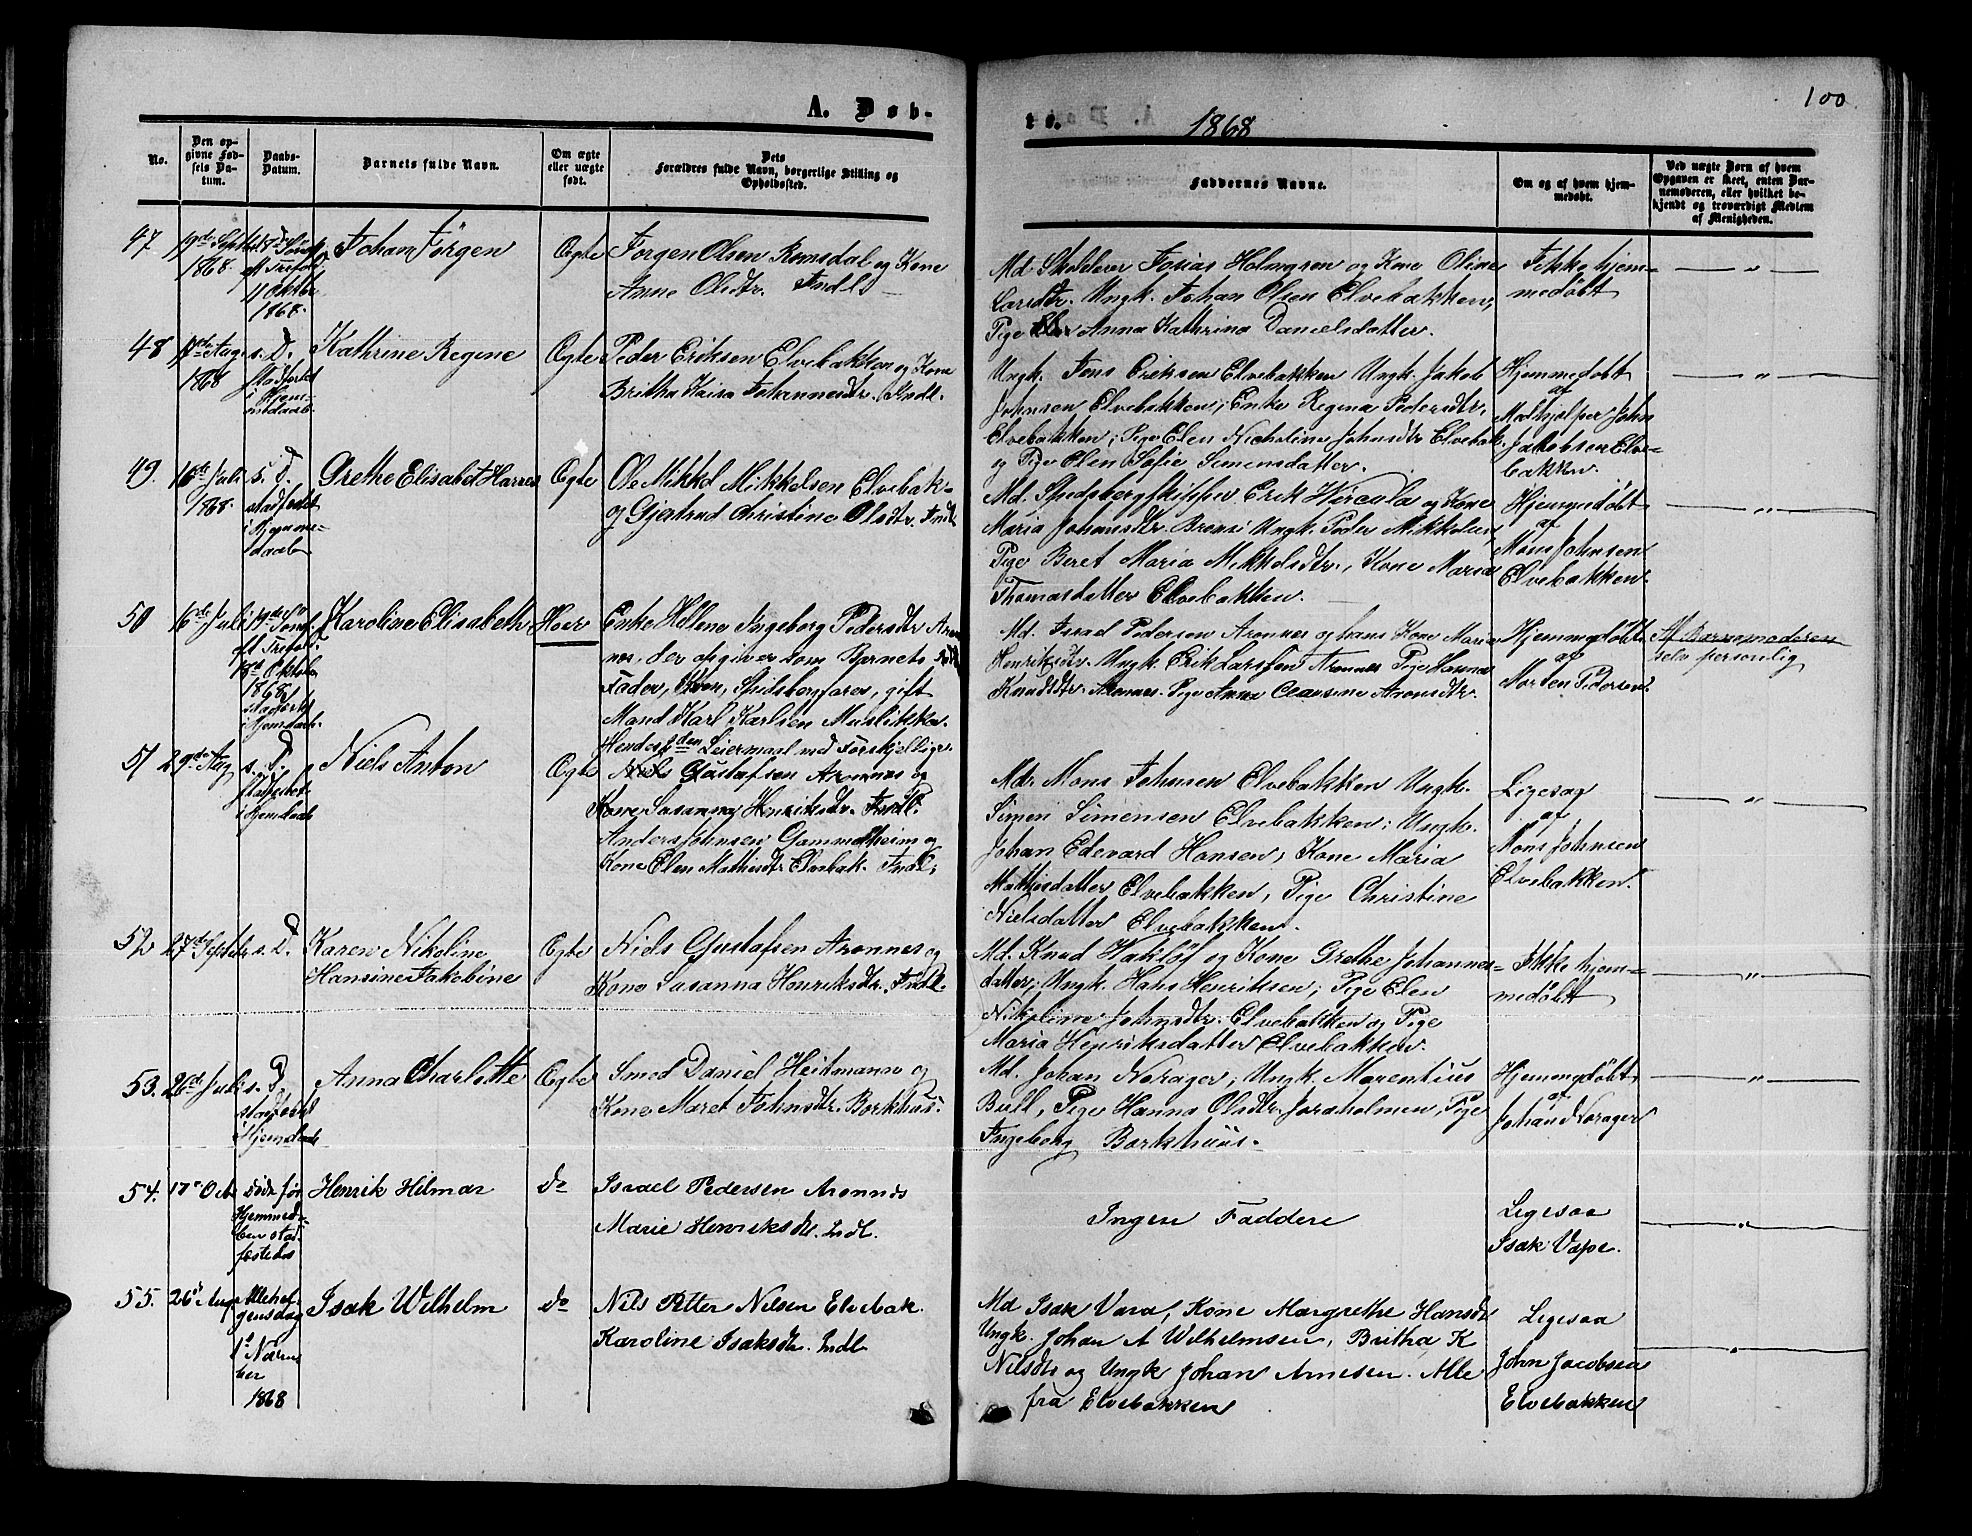 100
A. Døb-
te.
1868
No.
Den op-
givne Fød-
sels Da-
tum.
Daabs-
Datum.
Barnets fulde Navn.
Om ægte
eller uægte
født.
Dets
Forældres fulde Navn, borgerlige Stilling og
Opholdssted.
Faddernes Navne.
Om og af hvem hjem-
medøbt.
Ved uægte Børn af hvem
Opgaven er skeet, enten Bar-
nemoderen, eller hvilket be-
kjendt og troværdigt Medlem
af Menigheden.
47
19de Septbr
1868.
18d Sønd
eft Trefol
11 Oktobr
1868.
Johan Jörgen
Ægte
Jorgen Olsen Romsdal og Kone
Anne Olsdtr. Indl
Md Skolelærer Josias Holmgren og Kone Oline
Larsdtr. Ungk. Johan Olsen Elvebakken,
Pige Anna Kathrina Danielsdatter.
Ikke hjem-
medöbt
— " —
48
17de Aug.
1868
s. D.
stadfestet
i Hjem-
medaab.
Kathrine Regine
Ægte
Peder Eriksen Elvebakken og Kone
Britha Kaisa Johannesdtr. Indl.
Ungk. Jens Eriksen Elvebakken Ungk. Jakob
Johnsen Elvebakken; Enke Regina Pedersdtr,
Elvebakken; Pige Elen Nicholine Johnsdtr Elvebak.
og Pige Elen Sofie Simensdatter.
Hjemmedobt
af
Medhjælper John
Jakobsen Elve-
bakken.
— " —
49.
16de Juli
1868.
s. D.
stadfestet
i Hjemme-
daab
Grethe Elisabet Hannes
Ægte
Ole Mikkel Mikkelsen Elvebak-
og Gjertrud Christine Olsdtr. Indl
Md. Spidsbergskipper Erik Kircula og Kone
Maria Johansdtr. Ungk. Peder Mikkelsen,
Pige Beret Maria Mikkelsdtr., Kone Maria
Thomasdatter Elvebakken.
Hjemmedöbt
af
Mons Johnsen
Elvebakken.
— " —
50
16de Juli
19de S.
eft Trefol.
18de Oktober
1868
stadfestet
i Hjemdaab.
Karoline Elisabeth
Hoer
Enke Hellene Ingeborg Pedersdtr Aron-
nes, der opgiver som Barnets
Fader, Spidsbergfarer, gift
Mand Karl Karlsen
Hendes den Leiermaal med Forskjellige.
Md. Israel Pedersen Aronnes og hans Kone Maria
Henriksdtr. Ungk. Erik Larssen Aronnes Pige Hanna
Knudsdtr Aronnes. Pige Anna Clausine Aronsdtr.
Hjemmedöbt
af
Morten Pedersen
Af Barnemoderen
selv personlig
51
29de Aug
s. D.
stadfestet
i Hjemdaab
Niels Anton
Ægte
Niels Gustafsen Aronnes og
Kone Susanna Henriksdtr. Indl.
Anders Johnsen Gammelheim og
Kone Elen Mathisdtr Elvebak. Indl;
Md. Mons Johnsen Elvebakken Ungk.
Simen Simensen Elvebakken; Ungk.
Johan Edevard Hansen, Kone Maria
Mathisdatter Elvebakken, Pige Christine
Nielsdatter Elvebakken.
Ligesag
af
Mons Johnsen
Elvebakken.
— " —
52
27de Septbr
s. D.
Karen Nikoline
Hansine Jakobine
Ægte
Niels Gustafsen Aronnes og
Kone Susanna Henriksdtr. Indl.
Md. Knud Haklöf og Kone Grethe Johannes-
datter; Ungk. Hans Henriksen; Pige Elen
Nikoline Johnsdtr. Elvebakken og Pige
Maria Henriksdatter Elvebakken.
Ikke hjem-
medöbt
— " —
53.
26de Juli
s. D.
stadfestet
i Hjemdaab
Anna Charlotte
Ægte
Smed Daniel Heitmann og
Kone Maret Johnsdtr. Borkhus.
Md. Johan Norager; Ungk. Marentius
Bull, Pige Hanna Olsdtr. Joraholmen, Pige
Ingeborg Borkhuus.
Hjemmedöbt
af
Johan Norager
— " —
54.
17de Oct
Døde før
Hjemmedaa-
ben stad-
festedes
Henrik Hilmar
do
Israel Pedersen Aronnes
Marie Henriksdtr. Indl.
Ingen Faddere
Ligesaa
Isak Vape.
— " —
55.
26d Aug
Allehel-
gensdag
1d Novem
ber
1868
Isak Wilhelm
do
Nils Petter Nilsen Elvebak.
Karoline Isaksdtr. Indl
Md Isak Vara, Kone Margrethe Hansdtr
Ungk. Johan A Wilhelmsen, Britha K
Nilsdtr og Ungk Johan Arnesen. Alle
fra Elvebakken
Ligesaa
John Jacobsen
Elvebakken
— " —